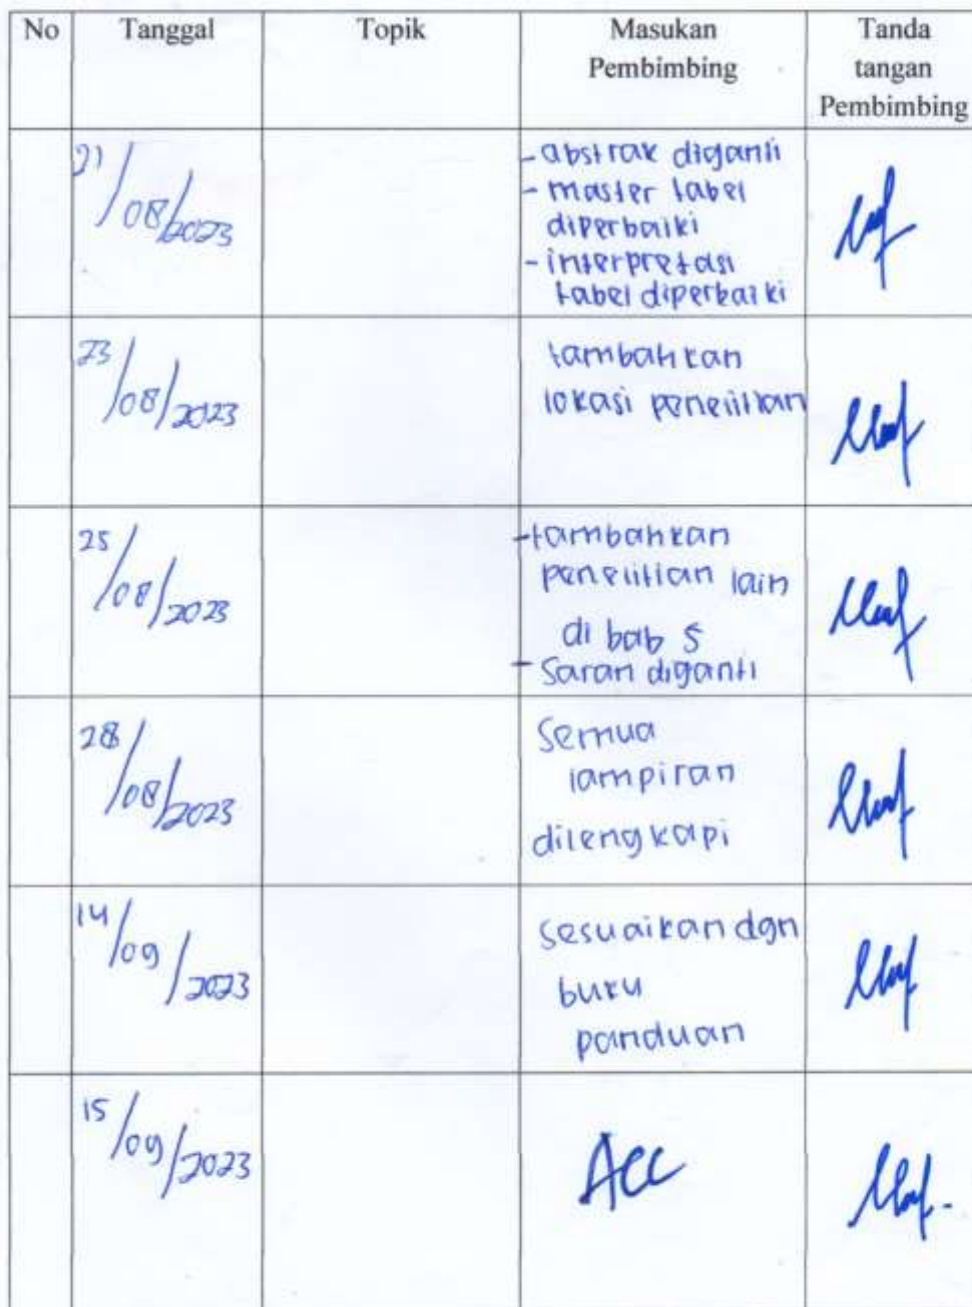 No Tanggal Topik Masukan Tanda
Pembimbing tangan
Pembimbing
21/08/2023 - abstrak diganti
- master tabel
diperbaiki
- interpretasi
tabel diperbaiki
23/08/2023 tambahkan
lokasi penelitian
25/08/2023 - tambahkan
penelitian lain
di bab 5
- Saran diganti
28/08/2023 Semua
lampiran
dilengkapi
14/09/2023 sesuaikan dgn
buku
panduan
15/09/2023 ACC